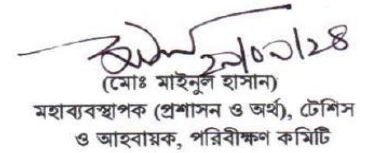 (মোঃ মাইনুল হাসান)
মহাব্যবস্থাপক (প্রশাসন ও অর্থ), টেশিস
ও আহবায়ক, পরিবীক্ষণ কমিটি